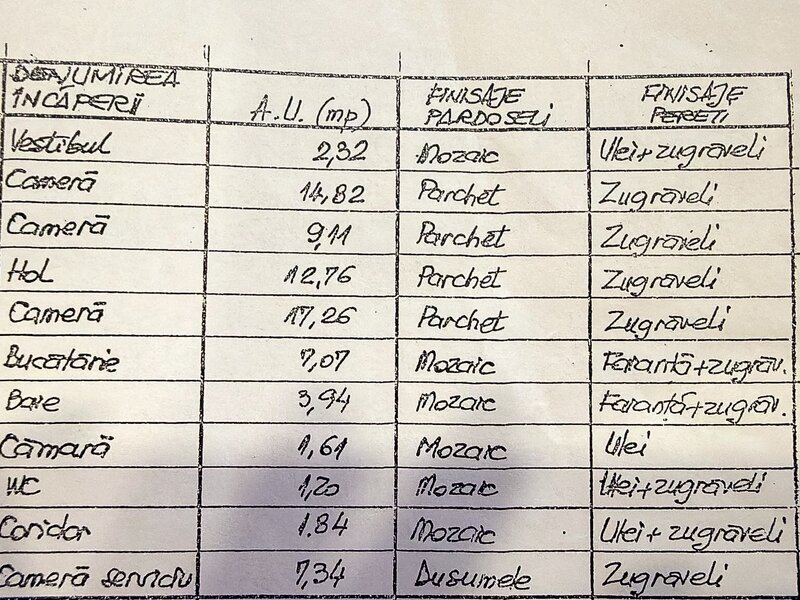 DENUMIREA ÎNCĂPERII A.U. (mp) FINISAJE PARDOSELI FINISAJE PEREȚI
Vestibul 2,32 Mozaic Ulei+zugrăveli
Cameră 14,82 Parchet Zugrăveli
Cameră 9,11 Parchet Zugrăveli
Hol 12,76 Parchet Zugrăveli
Cameră 17,26 Parchet Zugrăveli
Bucătărie 7,07 Mozaic Faianță+zugrăv.
Baie 3,94 Mozaic Faianță+zugrăv.
Cămară 1,61 Mozaic Ulei
WC 1,20 Mozaic Ulei+zugrăveli
Coridor 1.84 Mozaic Ulei+zugrăveli
Cameră serviciu 7,34 Dusumele Zugrăveli